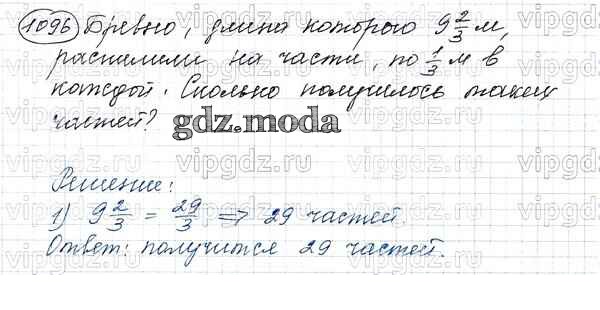 1096 Бревно, длина которого 9 2/3 м,
распилили на части, по 1/3 м в
каждой. Сколько получилось таких
частей?
gdz.moda
Решение:
1) 9 2/3 = 29/3 => 29 частей.
Ответ: получится 29 частей.
vipgdz.ru